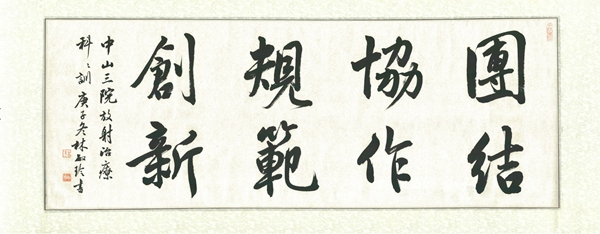 團結
協作
規範
創新
中山三院放射治療
科〻訓 庚子冬林敏玲書